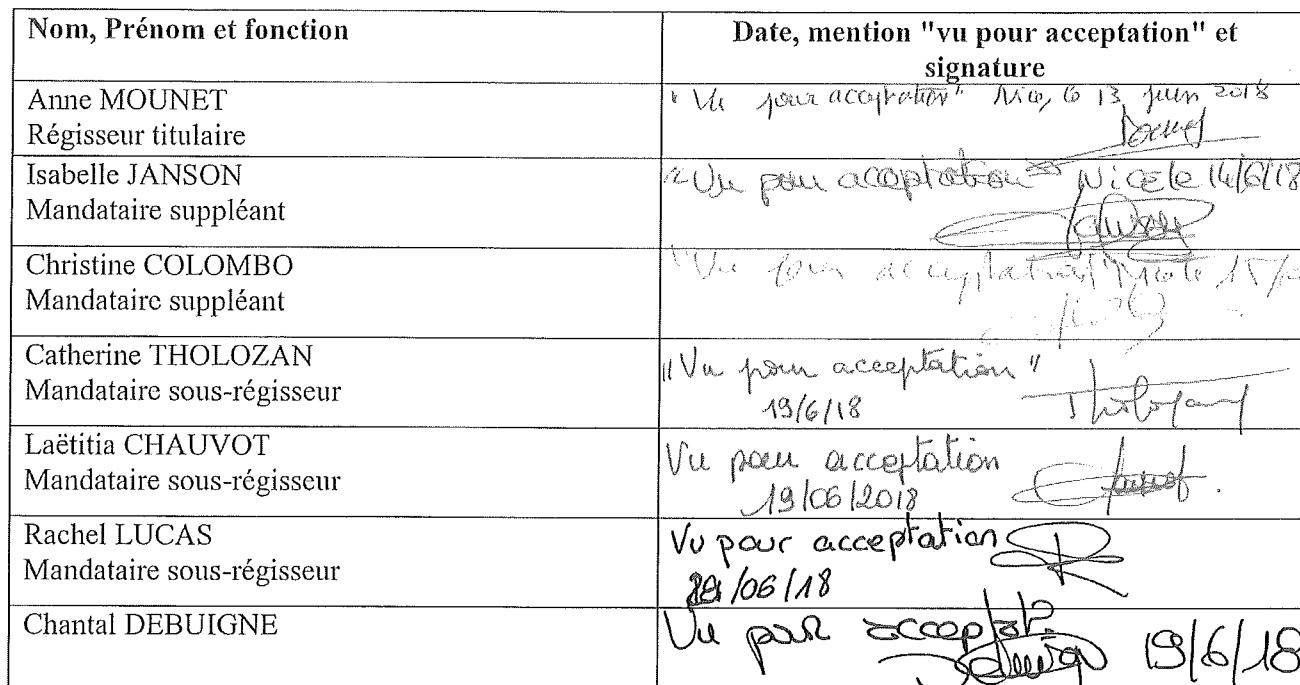 Nom, Prénom et fonction
Date, mention "vu pour acceptation" et
signature
Anne MOUNET
Régisseur titulaire
"Vu pour acceptation" Nice, le 13 juin 2018
Isabelle JANSON
Mandataire suppléant
"Vu pour acceptation" Nice le 14/6/18
Christine COLOMBO
Mandataire suppléant
"Vu pour acceptation" Nice le 15/
Catherine THOLOZAN
Mandataire sous-régisseur
"Vu pour acceptation"
19/6/18
Tholozan
Laëtitia CHAUVOT
Mandataire sous-régisseur
Vu pour acceptation
19/06/2018
Rachel LUCAS
Mandataire sous-régisseur
Vu pour acceptation
/06/18
Chantal DEBUIGNE
Vu pour acceptat.
19/6/18